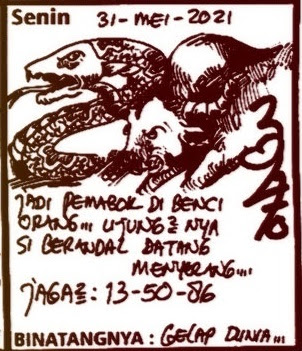 Senin 31-MEI-2021
JADI PEMABOK DI BENCI
ORANG... UJUNG2 NYA
SI BERANDAL DATANG
MENYERANG...
JAGA2: 13-50-86
BINATANGNYA : GELAP DUNIA...